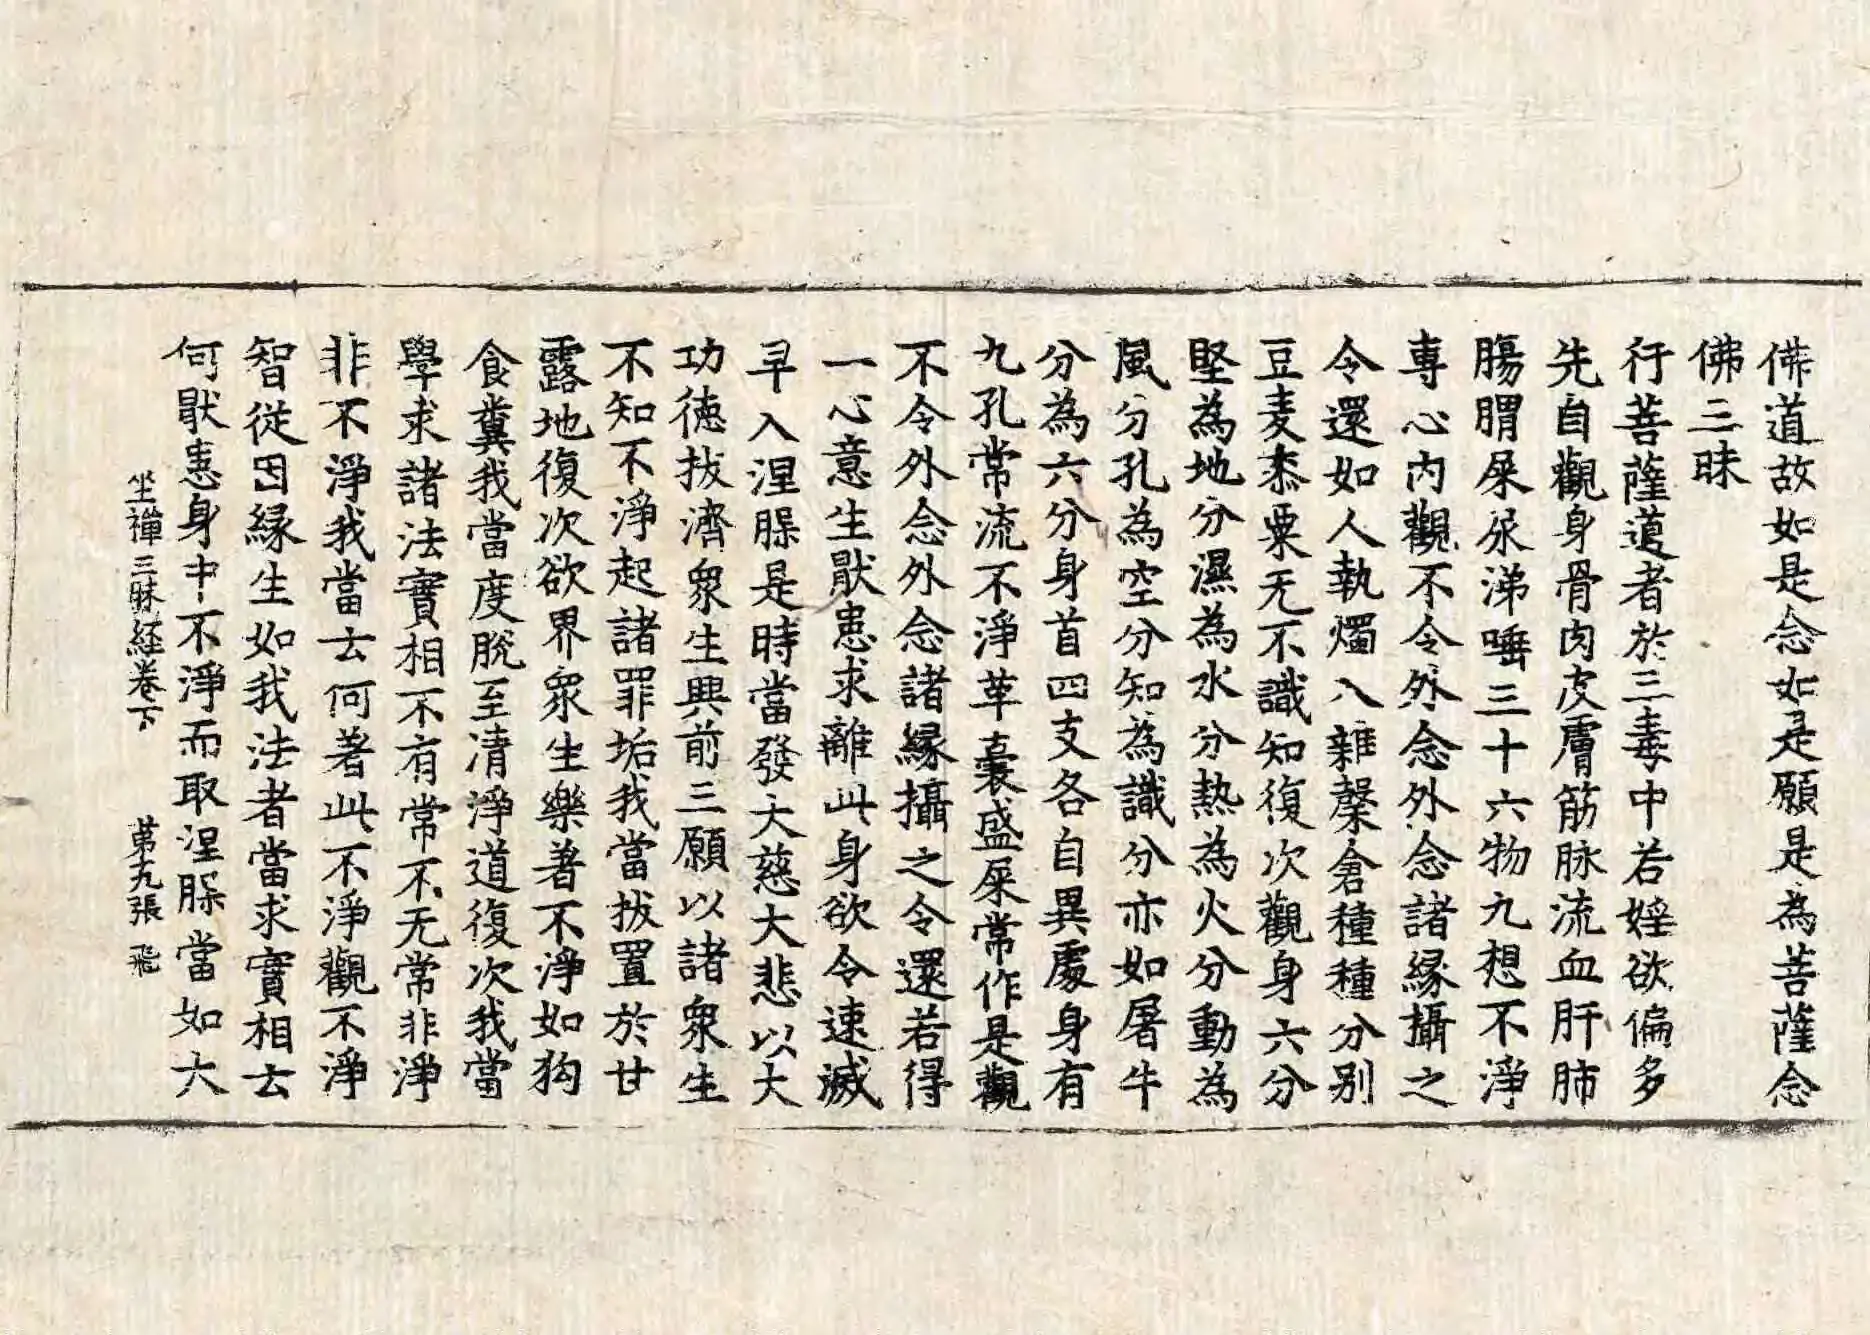 佛道故如是念如是願是為菩薩念
佛三昧
行菩薩道者於三毒中若婬欲偏多
先自觀身骨肉皮膚筋脉流血肝肺
腸胃屎尿涕唾三十六物九想不淨
專心內觀不令外念外念諸緣攝之
令還如人執燭入雜穀倉種種分別
豆麦黍粟无不識知復次觀身六分
堅為地分濕為水分熱為火分動為
風分孔為空分知為識分亦如屠牛
分為六分身首四支各自異處身有
九孔常流不淨革囊盛屎常作是觀
不令外念外念諸緣攝之令還若得
一心意生猒患求離此身欲令速滅
早入涅槃是時當發大慈大悲以大
功德拔濟衆生興前三願以諸衆生
不知不淨起諸罪垢我當拔置於甘
露地復次欲界衆生樂著不淨如狗
食糞我當度脫至清淨道復次我當
學求諸法實相不有常不无常非淨
非不淨我當去何著此不淨觀不淨
智從因緣生如我法者當求實相去
何猒患身中不淨而取涅槃當如大
坐禪三昧経卷下 苐九張 飛